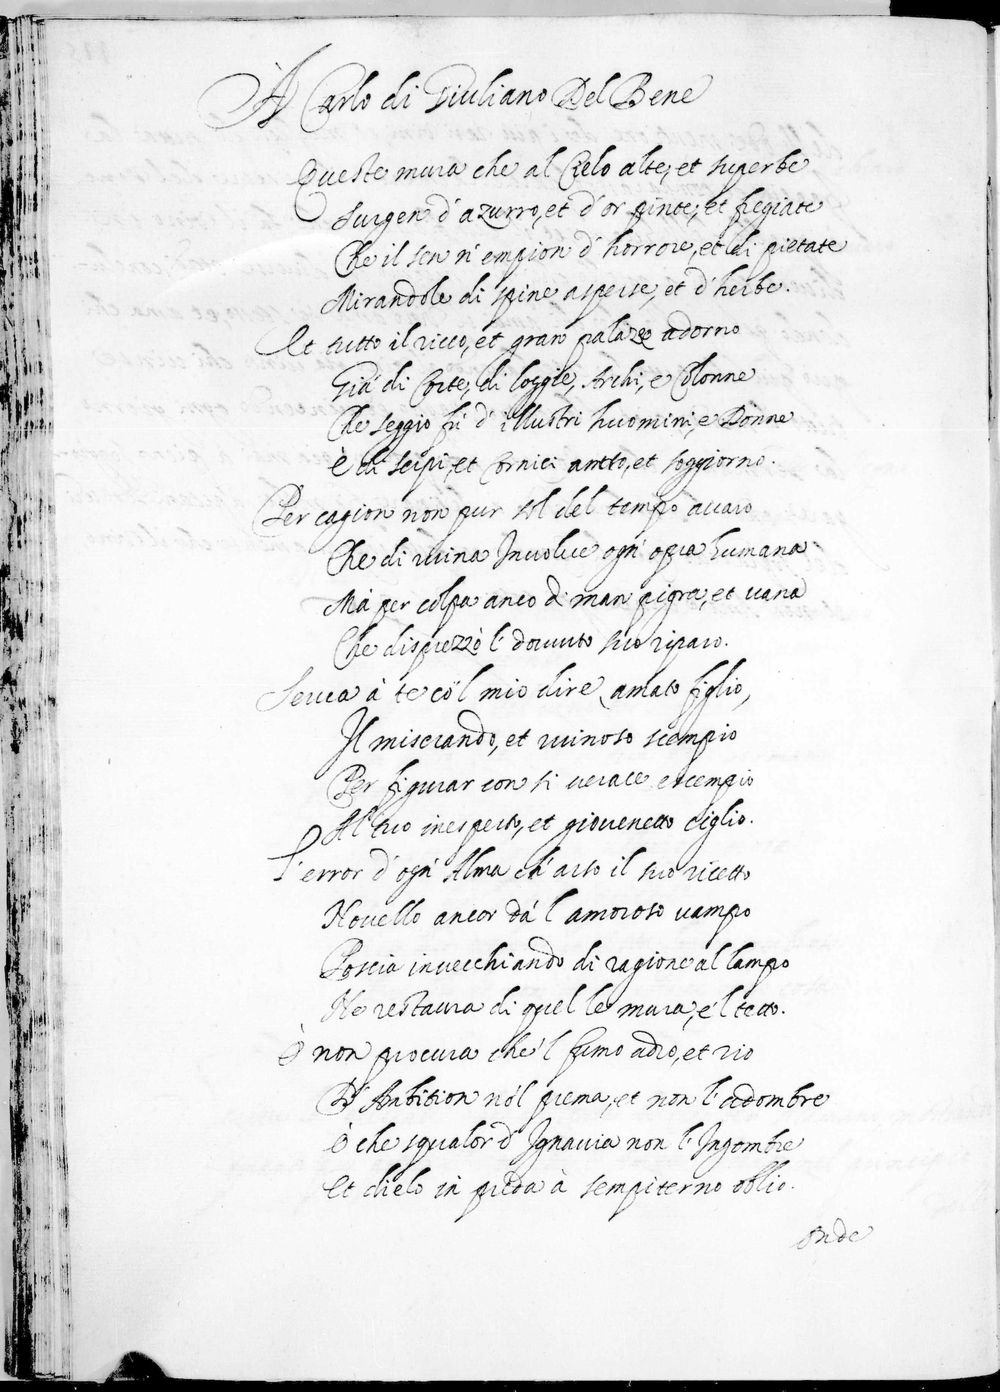 À Carlo di Giuliano Del Bene
Queste mura che al Cielo alte, et superbe
Surgen d'azurro, et d'or pinte, et fregiate
Che il sen n'empion d'horrore, et di pietate
Mirandole di spine asperse, et d'herbe.
Et tutto il ricco, et gran palazzo adorno
Già di Corte, di loggie, Archi, e Colonne
Che seggio fù d'illustri huomini, e Donne
È di serpi, et Cornici antro, et soggiorno.
Per cagion non pur sol del tempo avaro
Che di ruina Involve ogn'opra humana
Mà per colpa anco di man pigra, et vana
Che disprezzò l'dovuto suo riparo.
Serva à te co'l mio dire amato figlio,
Il miserando, et ruinoso scempio
Per figurar con si verace essempio
Al tuo inesperto, et giovenetto ciglio.
L'error d'ogn'Alma ch'arso il suo ricetto
Novello ancor dà l'amoroso vampo
Poscia invecchiando di ragione al lampo
Ne restaura di quelle mura, e'l tetto.
O non procura che'l fumo adro, et rio
D'Ambition no'l prema, et non l'adombre
O che squalor d'Ignavia non l'Ingombre
Et dielo in preda à sempiterno oblio.
Onde